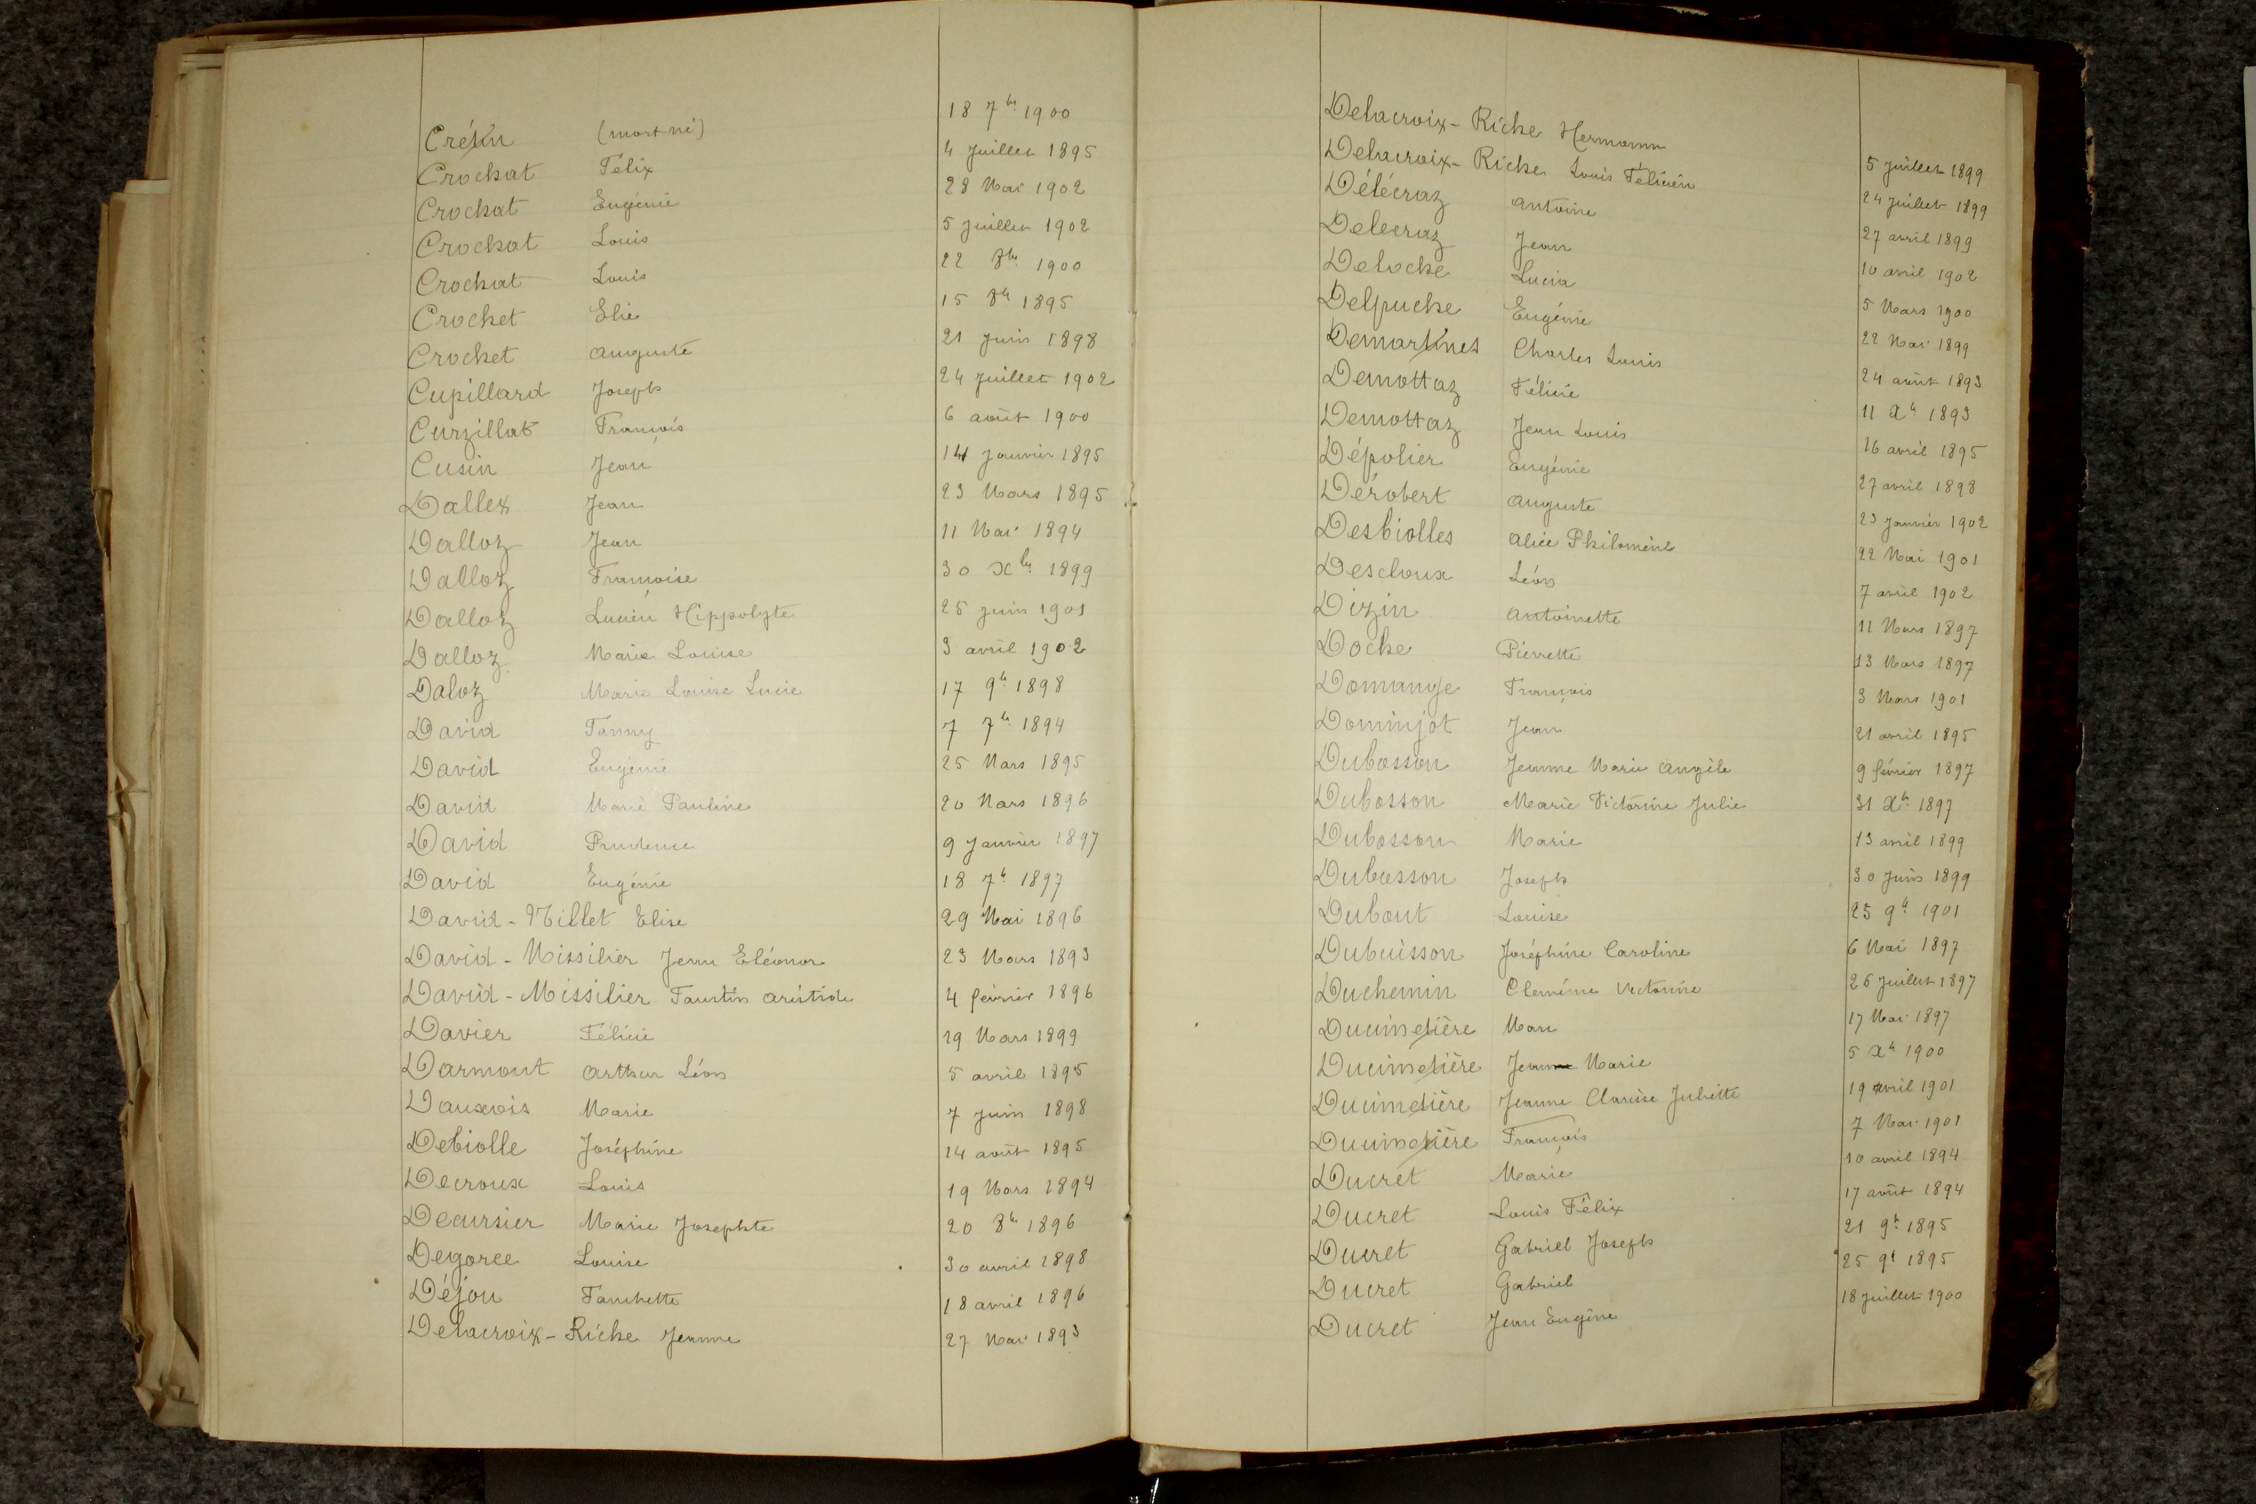 Crétin (mort né) 18 7bre 1900
Crochat Félix 4 Juillet 1895
Crochat Eugénie 28 Mai 1902
Crochat Louis 5 Juillet 1902
Crochat Louis 22 8bre 1900
Crochet Elie 15 8bre 1895
Crochet Auguste 21 Juin 1898
Cupillard Joseph 24 Juillet 1902
Curzillat François 6 août 1900
Cusin Jean 14 Janvier 1895
Dallex Jean 23 Mars 1895
Dalloz Jean 11 Mai 1894
Dalloz Françoise 30 Xbre 1899
Dalloz Lucien Hippolyte 25 Juin 1901
Dalloz Marie Louise 3 avril 1902
Daloz Marie Louise Lucie 17 9bre 1898
David Fanny 7 7bre 1894
David Eugénie 25 Mars 1895
David Marie Pauline 20 Mars 1896
David Prudence 9 Janvier 1897
David Eugénie 18 7bre 1897
David-Millet Elise 29 Mai 1896
David-Missilier Jean Eléonor 23 Mars 1893
David-Missilier Faustin Aristide 4 février 1896
Davier Félicie 29 Mars 1899
Darmont Arthur Léon 5 avril 1895
Dauxois Marie 7 Juin 1898
Debiolle Joséphine 14 août 1895
Decroux Louis 19 Mars 1894
Decursier Marie Josephte 20 8bre 1896
Degorce Louise 30 avril 1898
Déjou Fanchette 18 avril 1896
Delacroix-Riche Jeanne 27 Mai 1893
Delacroix-Riche Hermann 5 Juillet 1899
Delacroix-Riche Louis Félicien 24 Juillet 1899
Délécraz Antoine 27 avril 1899
Delecraz Jean 10 avril 1902
Deloche Lucia 5 Mars 1900
Delpuche Eugénie 22 Mai 1899
Demartines Charles Louis 24 août 1893
Demottaz Félicie 11 Xbre 1893
Demottaz Jean Louis 16 avril 1895
Dépolier Eugénie 27 avril 1898
Dérobert Auguste 23 Janvier 1902
Desbiolles Alice Philomène 22 Mai 1901
Descloux Léon 7 avril 1902
Dizin Antoinette 11 Mars 1897
Doche Pierrette 13 Mars 1897
Domange François 3 Mars 1901
Dominjot Jean 21 avril 1895
Dubosson Jeanne Marie Angèle 9 février 1897
Dubosson Marie Victorine Julie 31 Xbre 1897
Dubosson Marie 13 avril 1899
Dubosson Joseph 30 Juin 1899
Dubout Louise 25 9bre 1901
Dubuisson Joséphine Caroline 6 Mai 1897
Duchemin Clemence Victorine 26 Juillet 1897
Ducimetière Marie 17 Mai 1897
Ducimetière Jean Marie 5 Xbre 1900
Ducimetière Jeanne Clarisse Juliette 19 avril 1901
Ducimetière François 7 Mai 1901
Ducret Marie 10 avril 1894
Ducret Louis Félix 17 août 1894
Ducret Gabriel Joseph 21 9bre 1895
Ducret Gabriel 25 9bre 1895
Ducret Jean Eugène 18 Juillet 1900